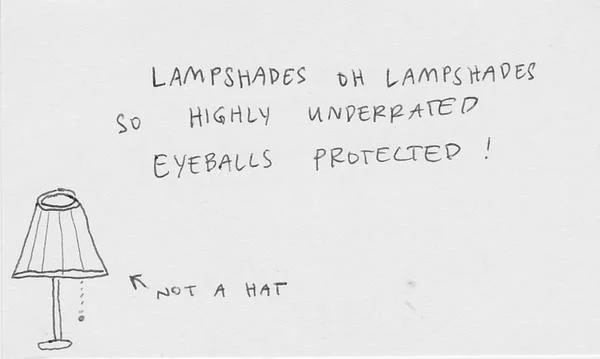 LAMPSHADES OH LAMPSHADES
SO HIGHLY UNDERRATED
EYEBALLS PROTECTED!
NOT A HAT